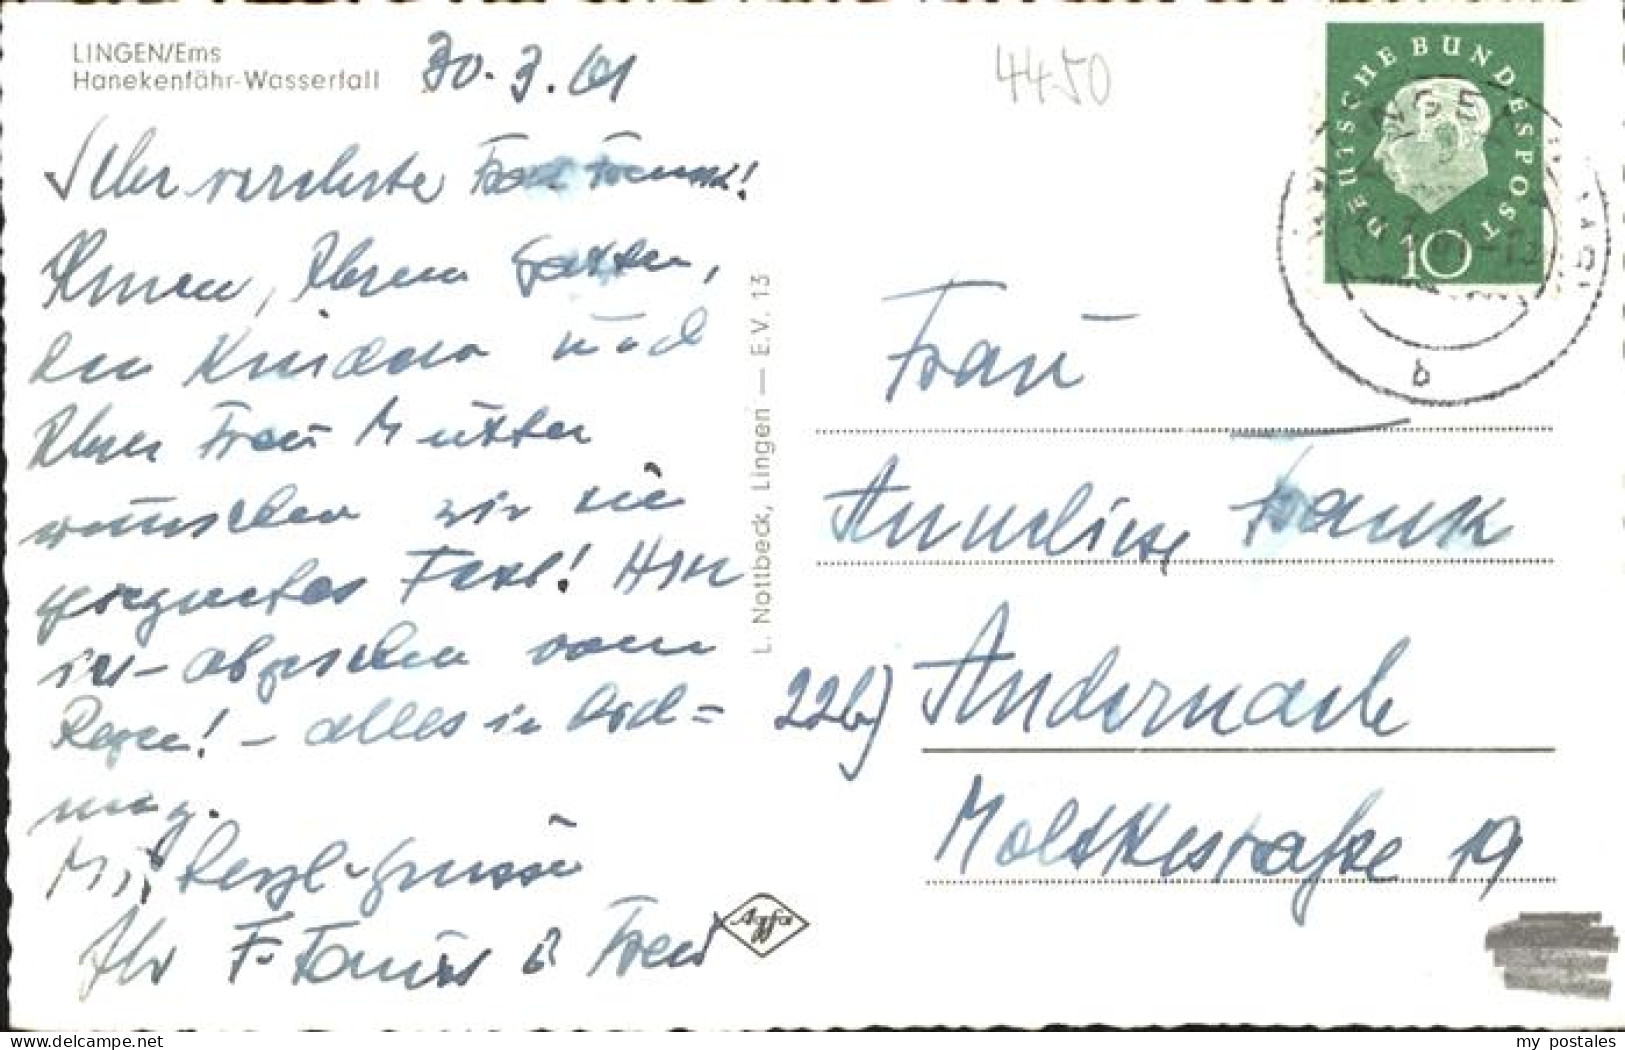 LINGEN/Ems
Hanekenfähr-Wasserfall
30.3.61
4450
DEUTSCHE BUNDESPOST
10
LINGEN
b
Sehr verehrte Frau Frank!
Ihnen, Ihrem Gatten,
den Kindern und
Ihrer Frau Mutter
wünschen wir ein
gesegnetes Fest! Hier
ist - abgesehen vom
Regen! - alles in Ord=
nung.
Mit herzl. Grüssen
Ihr F. u. Frau
L. Nottbeck, Lingen — E.V. 13
Agfa
Frau
Anneliese Frank
22b) Andernach
Moltkestraße 19
my_postales